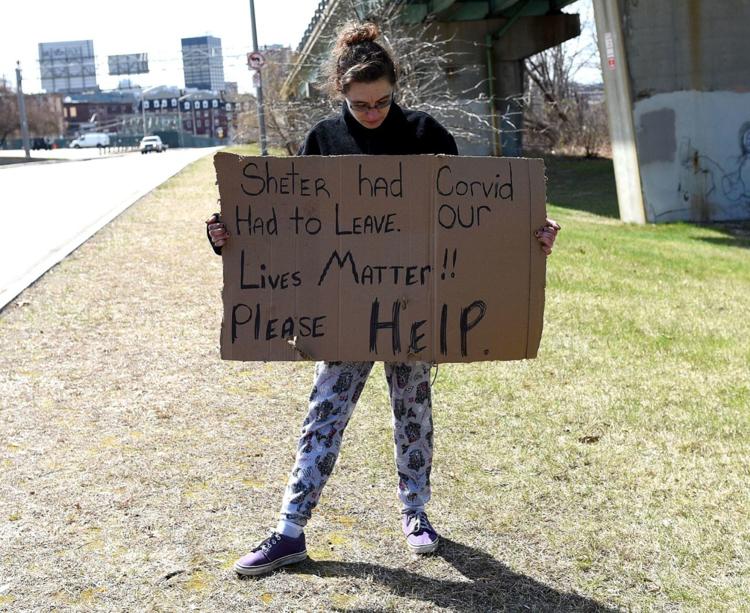 Sheter had Corvid
Had to Leave. our
Lives Matter!!
Please Help.